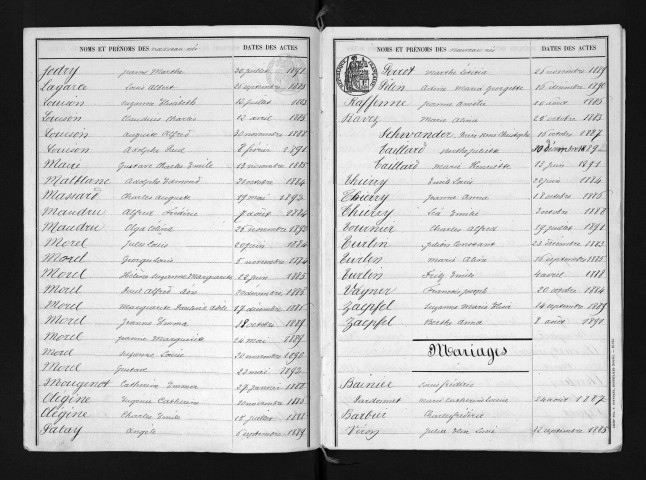 NOMS ET PRÉNOMS DES nouveau nés DATES DES ACTES
Jodry Jeanne Marthe 20 juillet 1891
Lagarce Louis Albert 1883
Louison Suzanne Elisabeth 12 juillet 1883
Louison Claudius Charles 12 avril 1885
Louison Auguste Alfred 30 novembre 1888
Louison Adolphe Paul 8 février 1891
Gustave Charles Emile 13 novembre 1885
Adolphe Edmond octobre 1884
Massard Charles Auguste 19 mai 1892
Maudru Alfred Frédéric 7 août 1884
Maudru Olga 26 novembre 1890
Morel Jules Louis 20 juin 1884
Morel Georges Louis 5 novembre 1884
Morel Hélène Suzanne Marguerite 22 juin 1885
Morel Paul Alfred Léon décembre 1885
Morel Marguerite Pauline Adèle 17 décembre 1886
Morel Jeanne Emma 18 octobre 1889
Morel Jeanne Marguerite 24 mai 1889
Morel Suzanne Louise 20 novembre 1890
Morel Gustave 22 mai 1892
Mougenot Catherine Emma 27 janvier 1888
Olégine Eugénie Catherine novembre 1883
Olégine Charles Emile juillet 1886
Palay Angèle septembre 1889
NOMS ET PRÉNOMS DES nouveau nés DATES DES ACTES
Perret Marthe 26 novembre 1889
Marie Georgette 16 décembre 1890
Jeanne Amélie 10 août 1885
Ravez Marie Alina 28 octobre 1883
Schwander 16 octobre 1887
Taillard 10 décembre 189
Taillard Marie Henriette 13 juin 1891
Thiéry Emile Louis 22 juin 1884
Thiéry Jeanne Anna 18 octobre 1886
Thiéry Léa Emilie 2 octobre 1888
Tournier Charles Alfred 19 juillet 1891
Turlin Julien Constant 23 décembre 1883
Turlin Marie Alice 16 septembre 1885
Turlin Emile 4 avril 1888
Vagner François Joseph 20 octobre 1884
Zaepfel Suzanne Marie 14 septembre 1889
Zaepfel Berthe Anna 2 août 1891
Mariages
Bainier Louis Frédéric
Marie Catherine Louise 24 août 1887
Barbier Charles Frédéric
Julie 12 septembre 1885